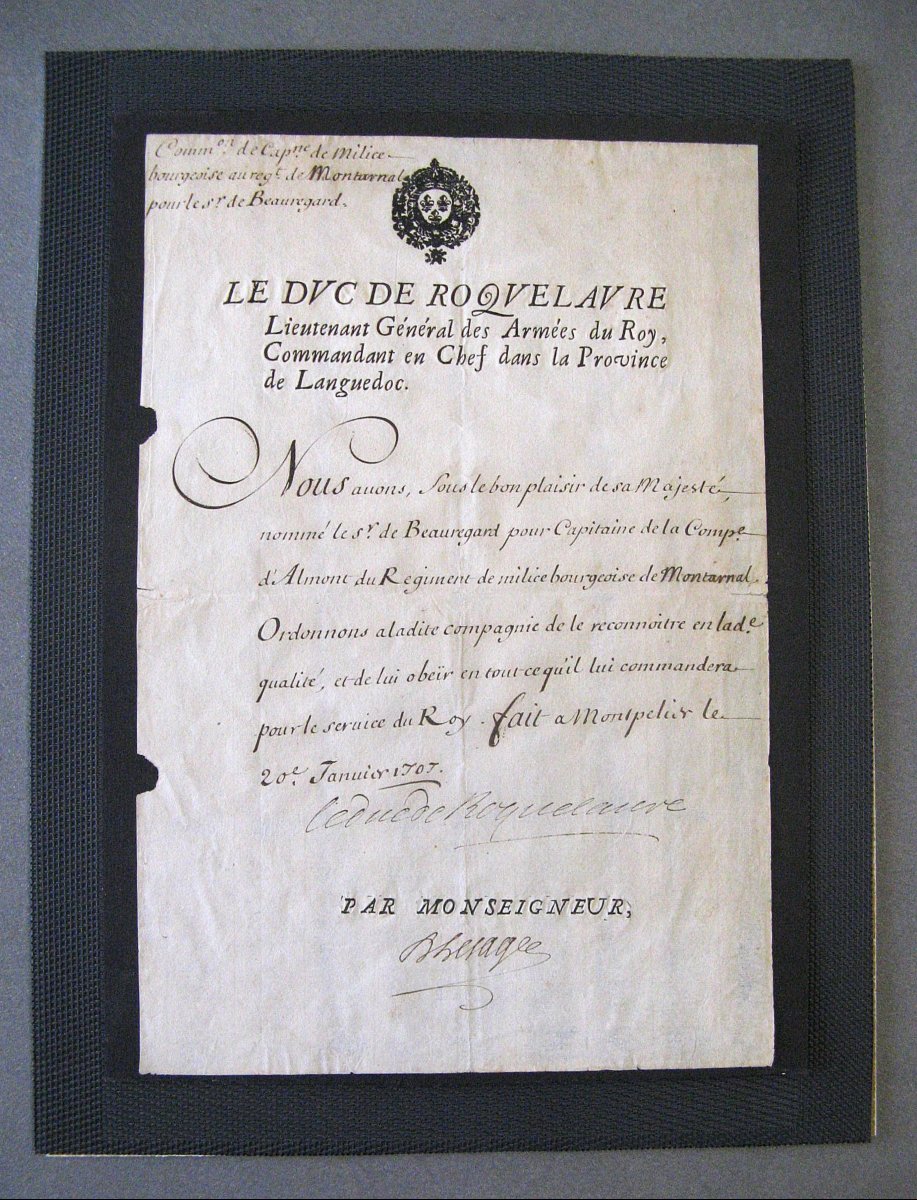 Comm.on de Cap.ne de Milice
bourgeoise au reg.t de Montarnal
pour le s.r de Beauregard.
LE DVC DE ROQVELAVRE
Lieutenant Général des Armées du Roy,
Commandant en Chef dans la Province
de Languedoc.
Nous auons, Sous le bon plaisir de sa Majesté,
nommé le s.r de Beauregard pour Capitaine de la Comp.e
d'Almont du Regiment de milice bourgeoise de Montarnal.
Ordonnons a ladite compagnie de le reconnoitre en lad.e
qualité, et de lui obeïr en tout ce qu'il lui commandera
pour le seruice du Roy. fait a Montpelier le
20.e Januier 1707.
le duc de Roquelaure
PAR MONSEIGNEUR,